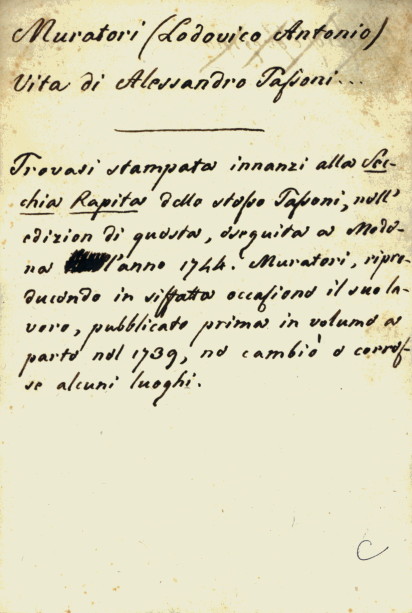 Muratori (Lodovico Antonio)
Vita di Alessandro Taſsoni...
Trovasi stampata innanzi alla Sec-
chia Rapita dello steſso Taſsoni, nell'
edizion di questa, eseguita a Mode-
na l'anno 1744. Muratori, ripro-
ducendo in siffatta occaſione il suo la-
voro, pubblicato prima in volume a
parte nel 1739, ne cambiò e correſ-
se alcuni luoghi.
C